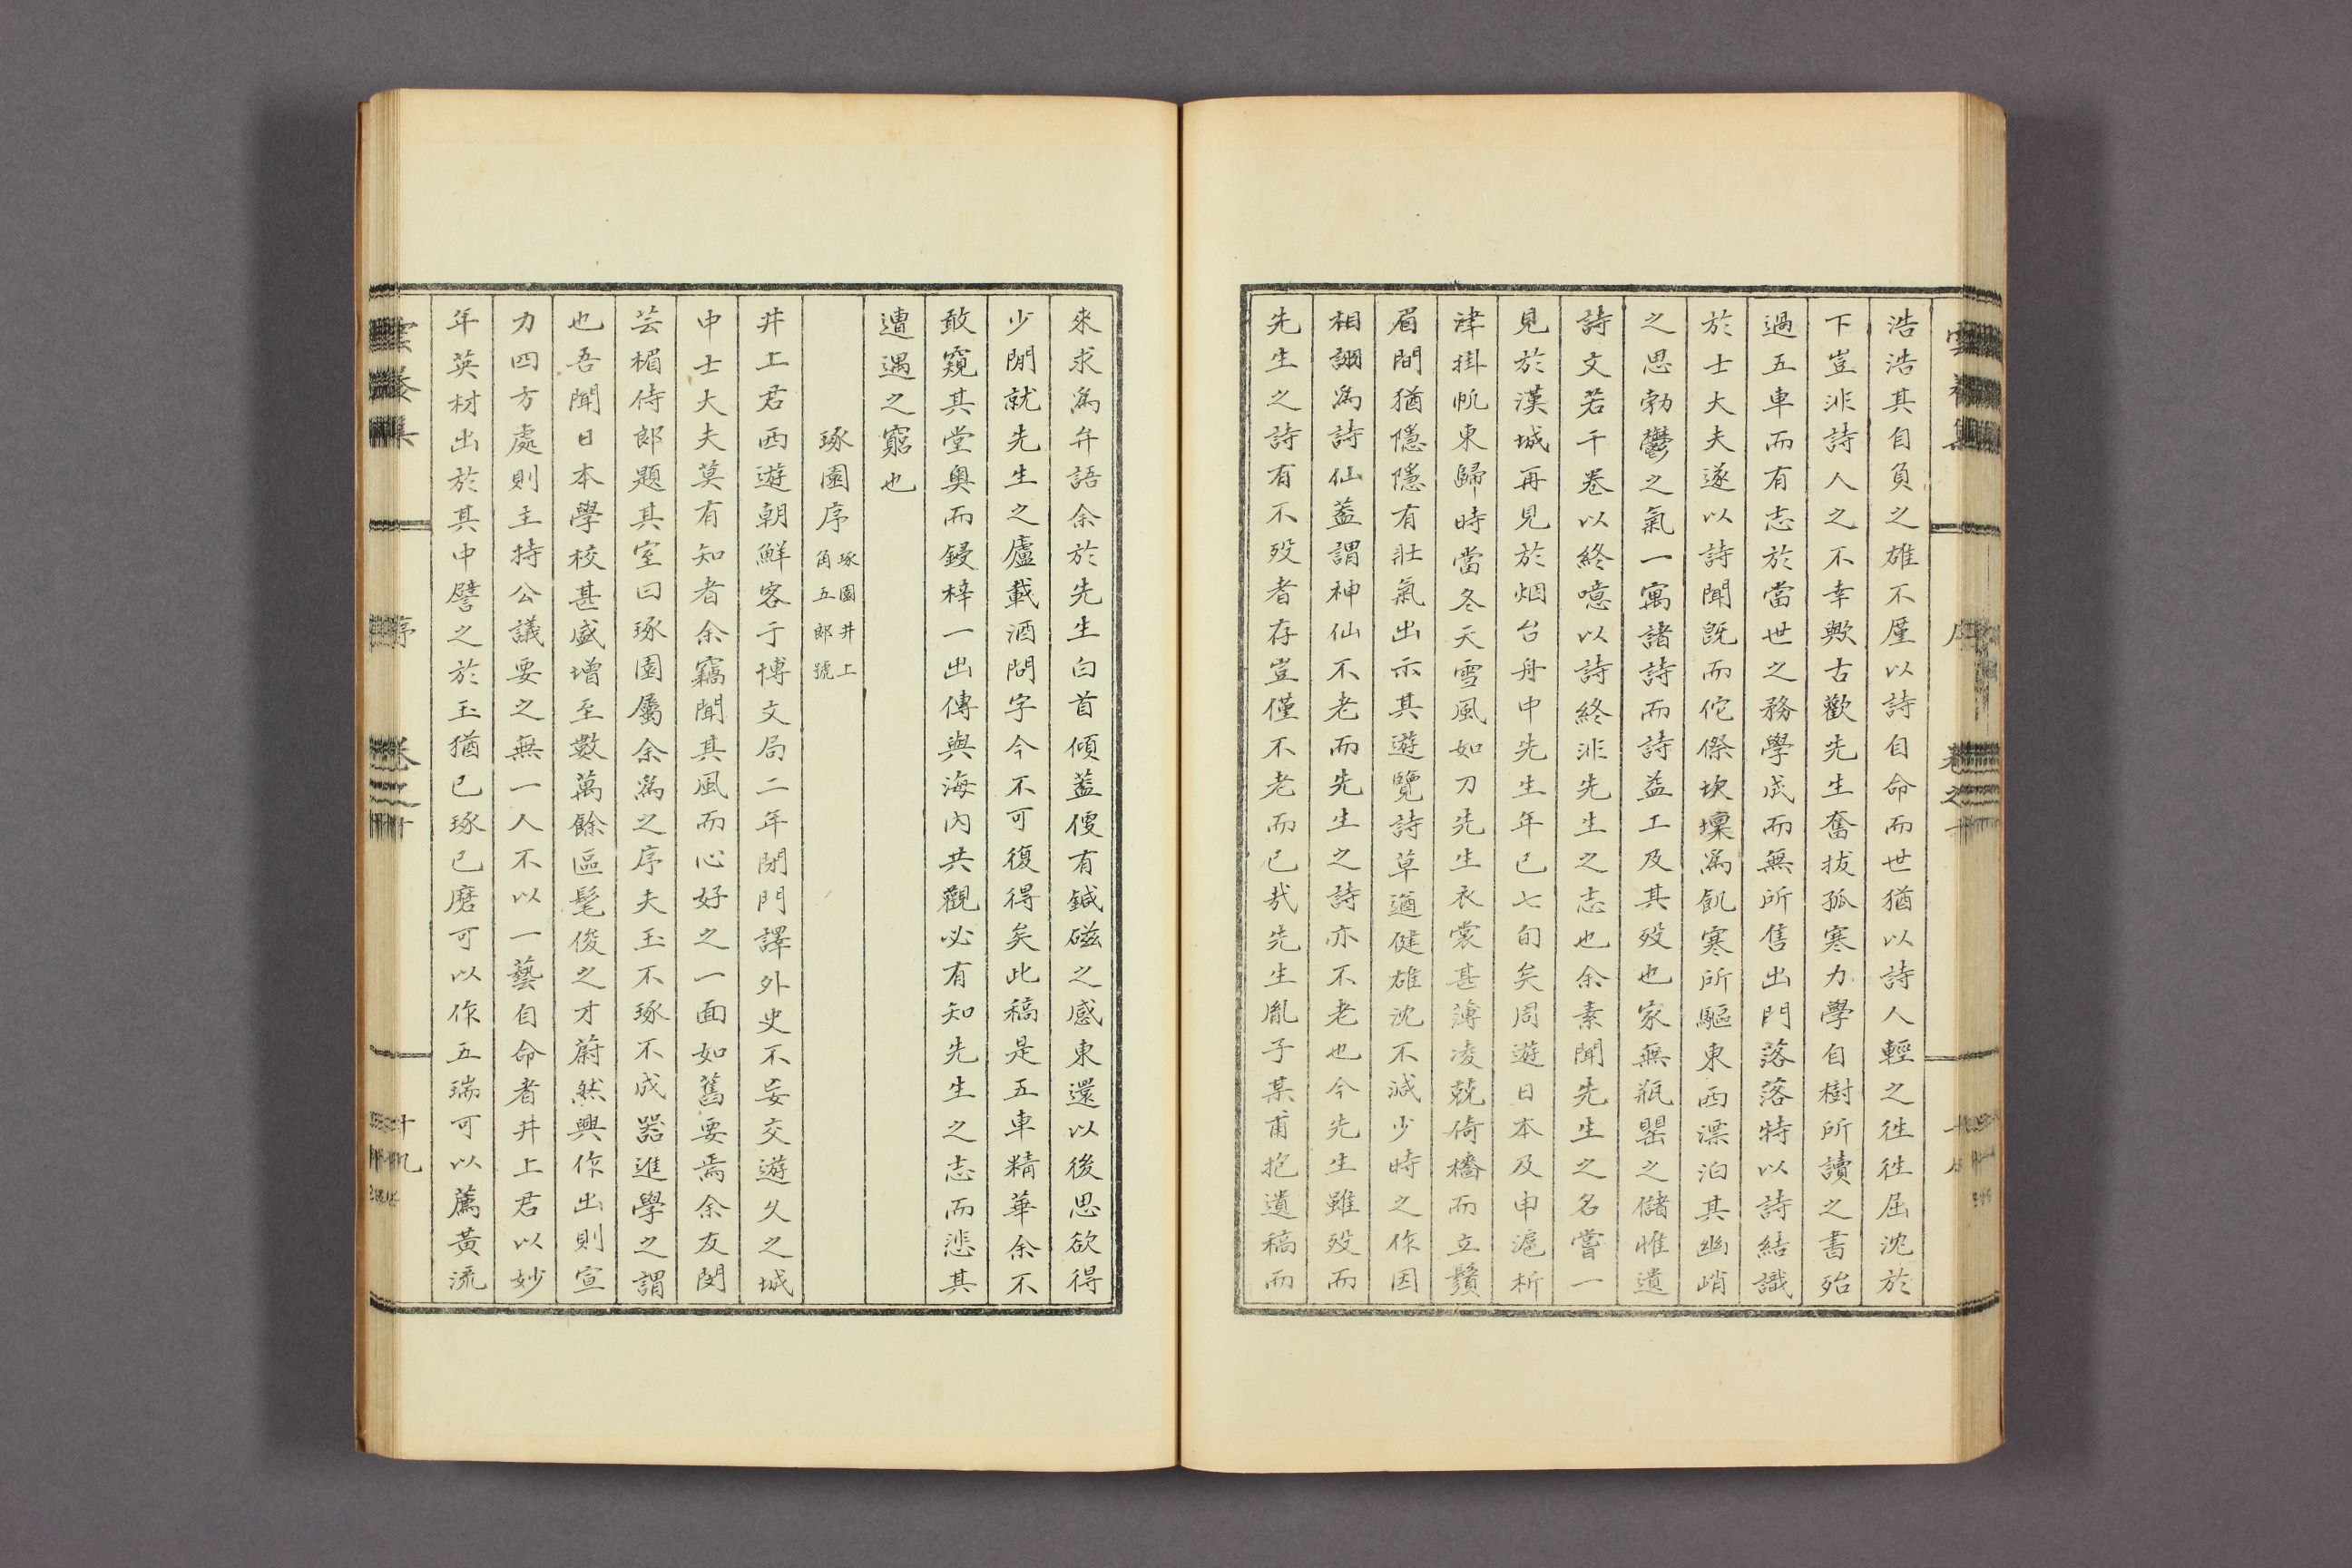 浩浩其自負之雄不廑以詩自命而世猶以詩人輕之徃徃屈沈於
下豈非詩人之不幸歟古歡先生奮拔孤寒力學自樹所讀之書殆
過五車而有志於當世之務學成而無所售出門落落特以詩結識
於士大夫遂以詩聞旣而侘傺坎壈爲飢寒所驅東西漂泊其幽峭
之思勃鬱之氣一寓諸詩而詩益工及其歿也家無瓶罌之儲惟遺
詩文若干卷以終噫以詩終非先生之志也余素聞先生之名嘗一
見於漢城再見於烟台舟中先生年已七旬矣周遊日本及申滬析
津掛帆東歸時當冬天雪風如刀先生衣裳甚薄凌兢倚檣而立鬚
眉間猶隱隱有壯氣出示其遊覽詩草遒健雄沈不減少時之作因
相謿爲詩仙蓋謂神仙不老而先生之詩亦不老也今先生雖歿而
先生之詩有不歿者存豈僅不老而已哉先生胤子某甫抱遺稿而
來求爲弁語余於先生白首傾蓋傁有鍼磁之感東還以後思欲得
少閒就先生之廬載酒問字今不可復得矣此稿是五車精華余不
敢窺其堂奥而鋟梓一出傳與海內共觀必有知先生之志而悲其
遭遇之窮也
琢園序 琢園井上角五郎號
井上君西遊朝鮮客于博文局二年閉門譯外史不妄交遊久之城
中士大夫莫有知者余竊聞其風而心好之一面如舊要焉余友閔
芸楣侍郎題其室曰琢園屬余爲之序夫玉不琢不成器進學之謂
也吾聞日本學校甚盛增至數萬餘區髦俊之才蔚然興作出則宣
力四方處則主持公議要之無一人不以一藝自命者井上君以妙
年英材出於其中譬之於玉猶已琢已磨可以作五瑞可以薦黃流
雲養集 序 卷之十 十九